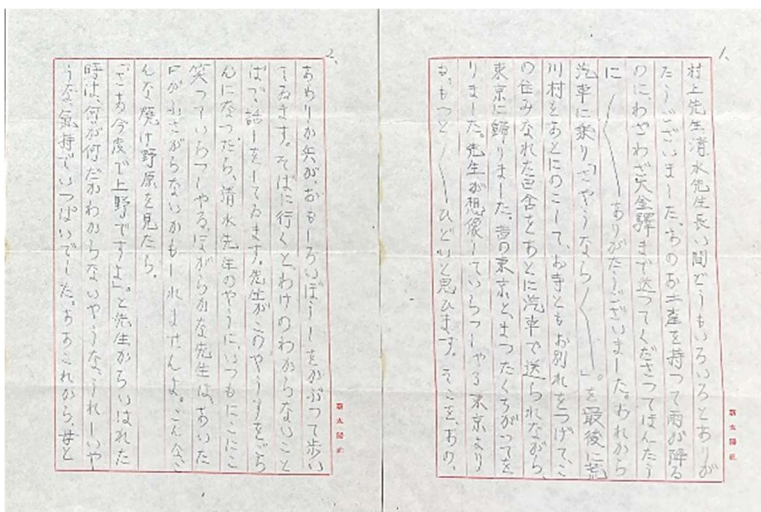 1.
村上先生清水先生長い間どうもいろいろとありが
たうございました、あのお土産を持つて雨が降る
のにわざわざ大金驛まで送つてくださつてほんたう
に〳〵ありがたうございました。あれから
汽車に乗り「さやうなら〳〵」。を最後に荒
川村をあとにのこして、お寺ともお別れをつげて、こ
の住みなれた田舎をあとに汽車で送られながら、
東京に歸りました。昔の東京と、まつたくちがつてを
りました。先生が想像していらつしやる東京より
も、もつと〳〵ひどいと思ひます。そこを、あの、
2.
あめりか兵が、おもしろいぼうしをかぶつて歩い
てゐます。そばに行くとわけのわからないこと
ばで、話しをしてゐます。先生がこのやうすをごら
んになつたら、清水先生のやうに、いつもにこにこ
笑つていらつしやるほがらかな先生は、あいた
口がふさがらないかもしれませんよ。こんなこ
んな焼け野原を見たら。
「さあ今度で上野ですよ」。と先生からいはれた
時は、何が何だかわからないやうな、うれしいや
うな氣持でいつぱいでした。ああこれから、母と